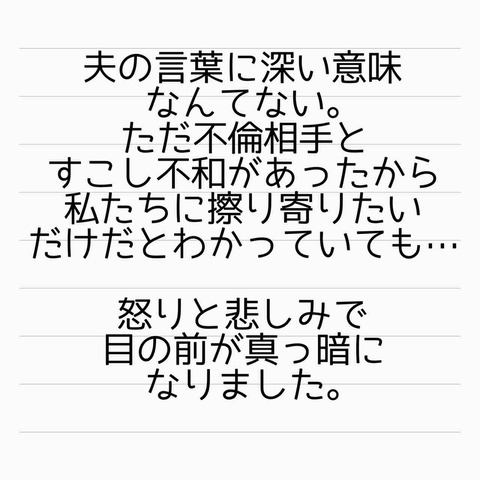 夫の言葉に深い意味
なんてない。
ただ不倫相手と
すこし不和があったから
私たちに擦り寄りたい
だけだとわかっていても…
怒りと悲しみで
目の前が真っ暗に
なりました。